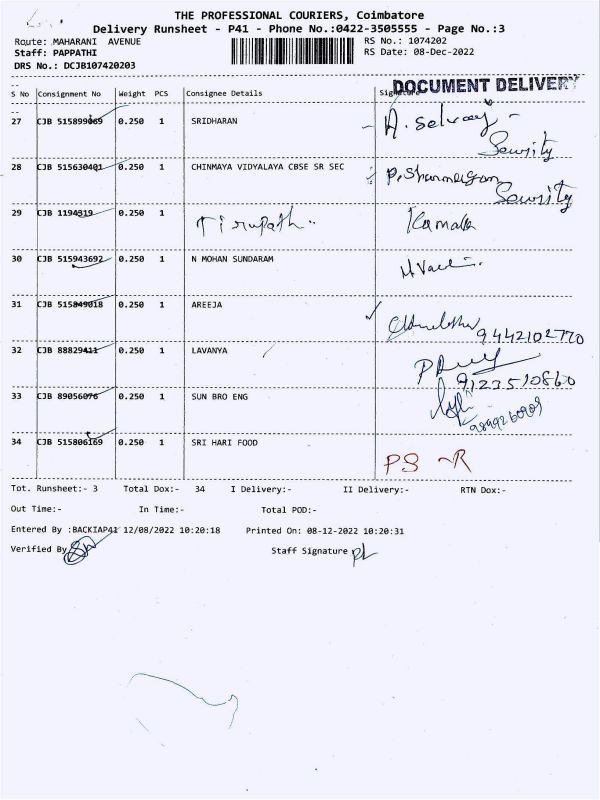 THE PROFESSIONAL COURIERS, Coimbatore
Delivery Runsheet - P41 - Phone No.:0422-3505555 - Page No.:3
Route: MAHARANI AVENUE RS No.: 1074202
Staff: PAPPATHI RS Date: 08-Dec-2022
DRS No.: DCJB107420203
DOCUMENT DELIVERY
S No Consignment No Weight PCS Consignee Details Signature
27 CJB 515899069 0.250 1 SRIDHARAN A. Selvaraj
Security
28 CJB 515630401 0.250 1 CHINMAYA VIDYALAYA CBSE SR SEC P. Shanmugam
Security
29 CJB 1194319 0.250 1 Tirupath.. Kamala
30 CJB 515943692 0.250 1 N MOHAN SUNDARAM
31 CJB 515849018 0.250 1 AREEJA
9442102770
32 CJB 88829411 0.250 1 LAVANYA
9123510860
33 CJB 89056076 0.250 1 SUN BRO ENG
9899260909
34 CJB 515806169 0.250 1 SRI HARI FOOD PS ~R
Tot. Runsheet:- 3 Total Dox:- 34 I Delivery:- II Delivery:- RTN Dox:-
Out Time:- In Time:- Total POD:-
Entered By :BACKIAP41 12/08/2022 10:20:18 Printed On: 08-12-2022 10:20:31
Verified By Staff Signature